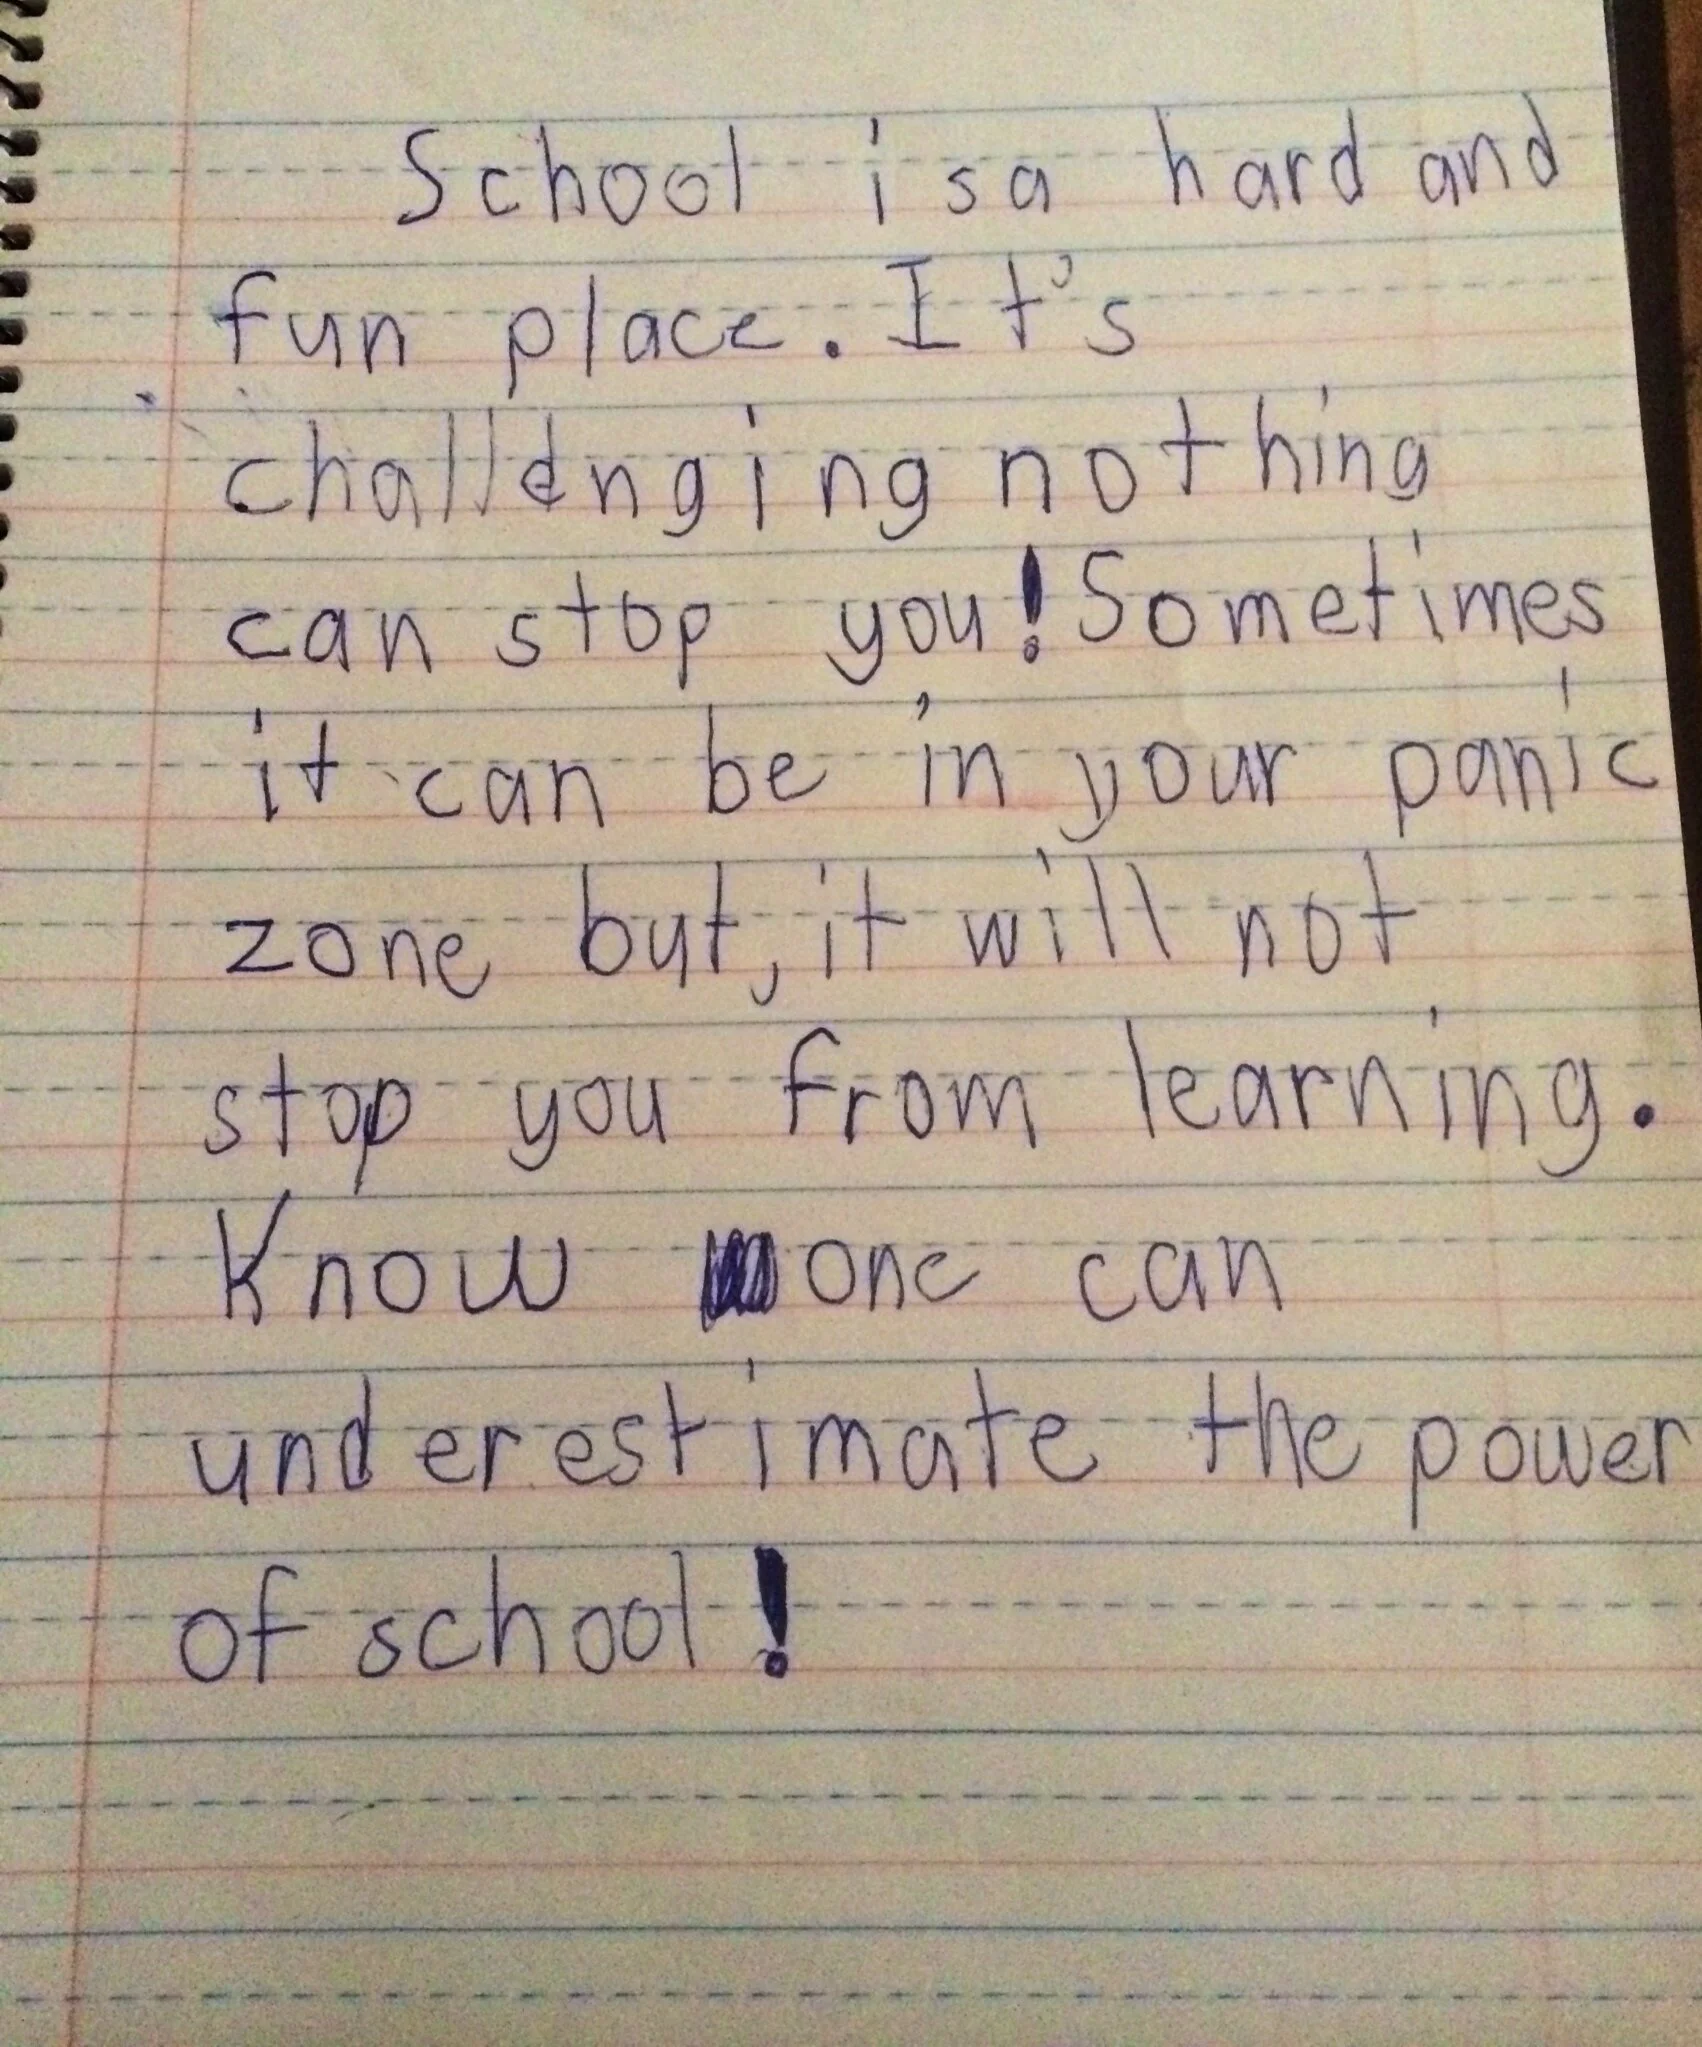 School is a hard and
fun place. It's
challenging nothing
can stop you! Sometimes
it can be in your panic
zone but, it will not
stop you from learning.
Know one can
underestimate the power
of school!